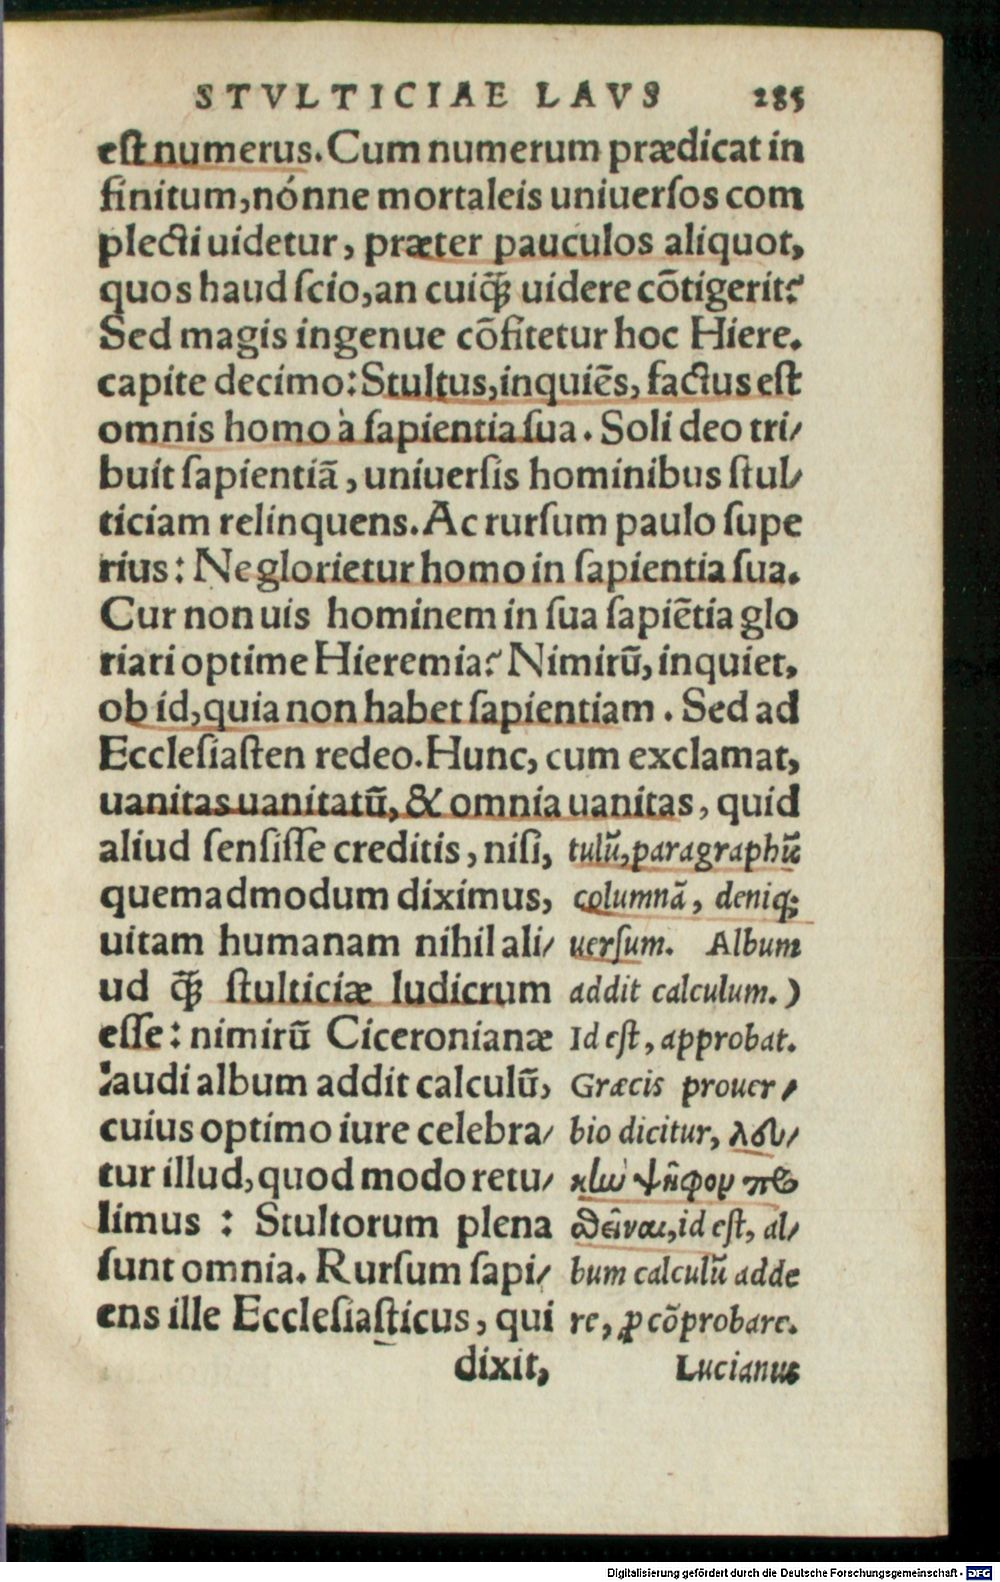 STVLTICIAE LAVS 285
est numerus. Cum numerum prædicat in
finitum, nónne mortaleis uniuersos com
plecti uidetur, præter pauculos aliquot,
quos haud scio, an cuiq̃ uidere cõtigerit?
Sed magis ingenue cõfitetur hoc Hiere.
capite decimo: Stultus, inquiẽs, factus est
omnis homo à sapientia sua. Soli deo tri/
buit sapientiã, uniuersis hominibus stul/
ticiam relinquens. Ac rursum paulo supe
rius: Ne glorietur homo in sapientia sua.
Cur non uis hominem in sua sapiẽtia glo
riari optime Hieremia? Nimirũ, inquiet,
ob id, quia non habet sapientiam. Sed ad
Ecclesiasten redeo. Hunc, cum exclamat,
uanitas uanitatũ, & omnia uanitas, quid
aliud sensisse creditis, nisi,
quemadmodum diximus,
uitam humanam nihil ali/
ud q̃ stulticiæ ludicrum
esse: nimirũ Ciceronianæ
laudi album addit calculũ,
cuius optimo iure celebra/
tur illud, quod modo retu/
limus: Stultorum plena
sunt omnia. Rursum sapi/
ens ille Ecclesiasticus, qui
dixit,
tulũ, paragraphũ
columnã, deniq;
uersum. Album
addit calculum.)
Id est, approbat.
Græcis prouer/
bio dicitur, λευ/
κὴν ψῆφον προ
θεῖναι, id est, al/
bum calculũ adde
re, ꝓ cõprobare.
Lucianus
Digitalisierung gefördert durch die Deutsche Forschungsgemeinschaft - DFG